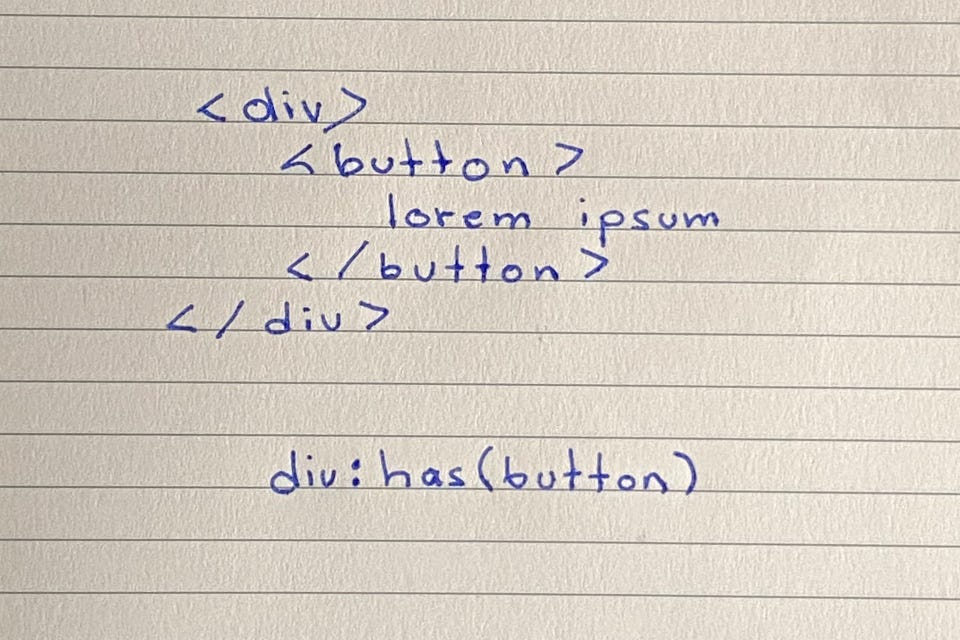 <div>
<button>
lorem ipsum
</button>
</div>
div:has(button)